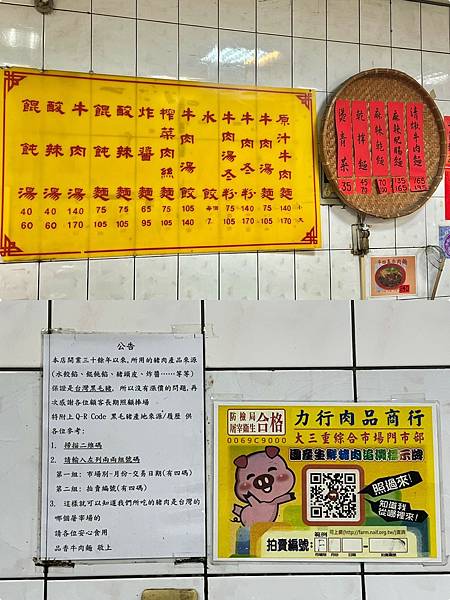 原汁牛肉麵 140 170
牛肉湯麵 75 105
牛肉冬粉 140 170
牛肉湯冬粉 75 105
水餃 每個 7
牛肉湯餃 140 170
榨菜肉絲麵 75 105
炸醬麵 65 95
酸辣麵 75 105
餛飩麵 75 105
牛肉湯 140 170
酸辣湯 40 60
餛飩湯 40 60
小
大
清燉牛肉麵 165 195
麻辣肥腸麵 135 165
麻辣乾麵
乾拌麵
燙青菜 35
公告
本店開業三十餘年以來,所用的豬肉產品來源
(水餃餡、餛飩餡、豬頭皮、炸醬……等等)
保證是台灣黑毛豬,所以沒有漲價的問題,再
次感謝各位顧客長期照顧捧場
特附上Q-R Code 黑毛豬產地來源/履歷 供
各位參考:
1. 掃描二維碼
2. 請輸入左列兩兩組號碼
第一組: 市場別-月份-交易日期(有四碼)
第二組: 拍賣編號(有四碼)
3. 這樣就可以知道我們所吃的豬肉是台灣的
哪個屠宰場的
請各位安心食用
品香牛肉麵 敬上
防檢局
屠宰衛生
合格
0069C9000
力行肉品商行
大三重綜合市場門市部
國產生鮮豬肉追溯標示牌
照過來!
知道我
從哪裡來!
可上網(http://farm.naif.org.tw/)查詢
拍賣編號: